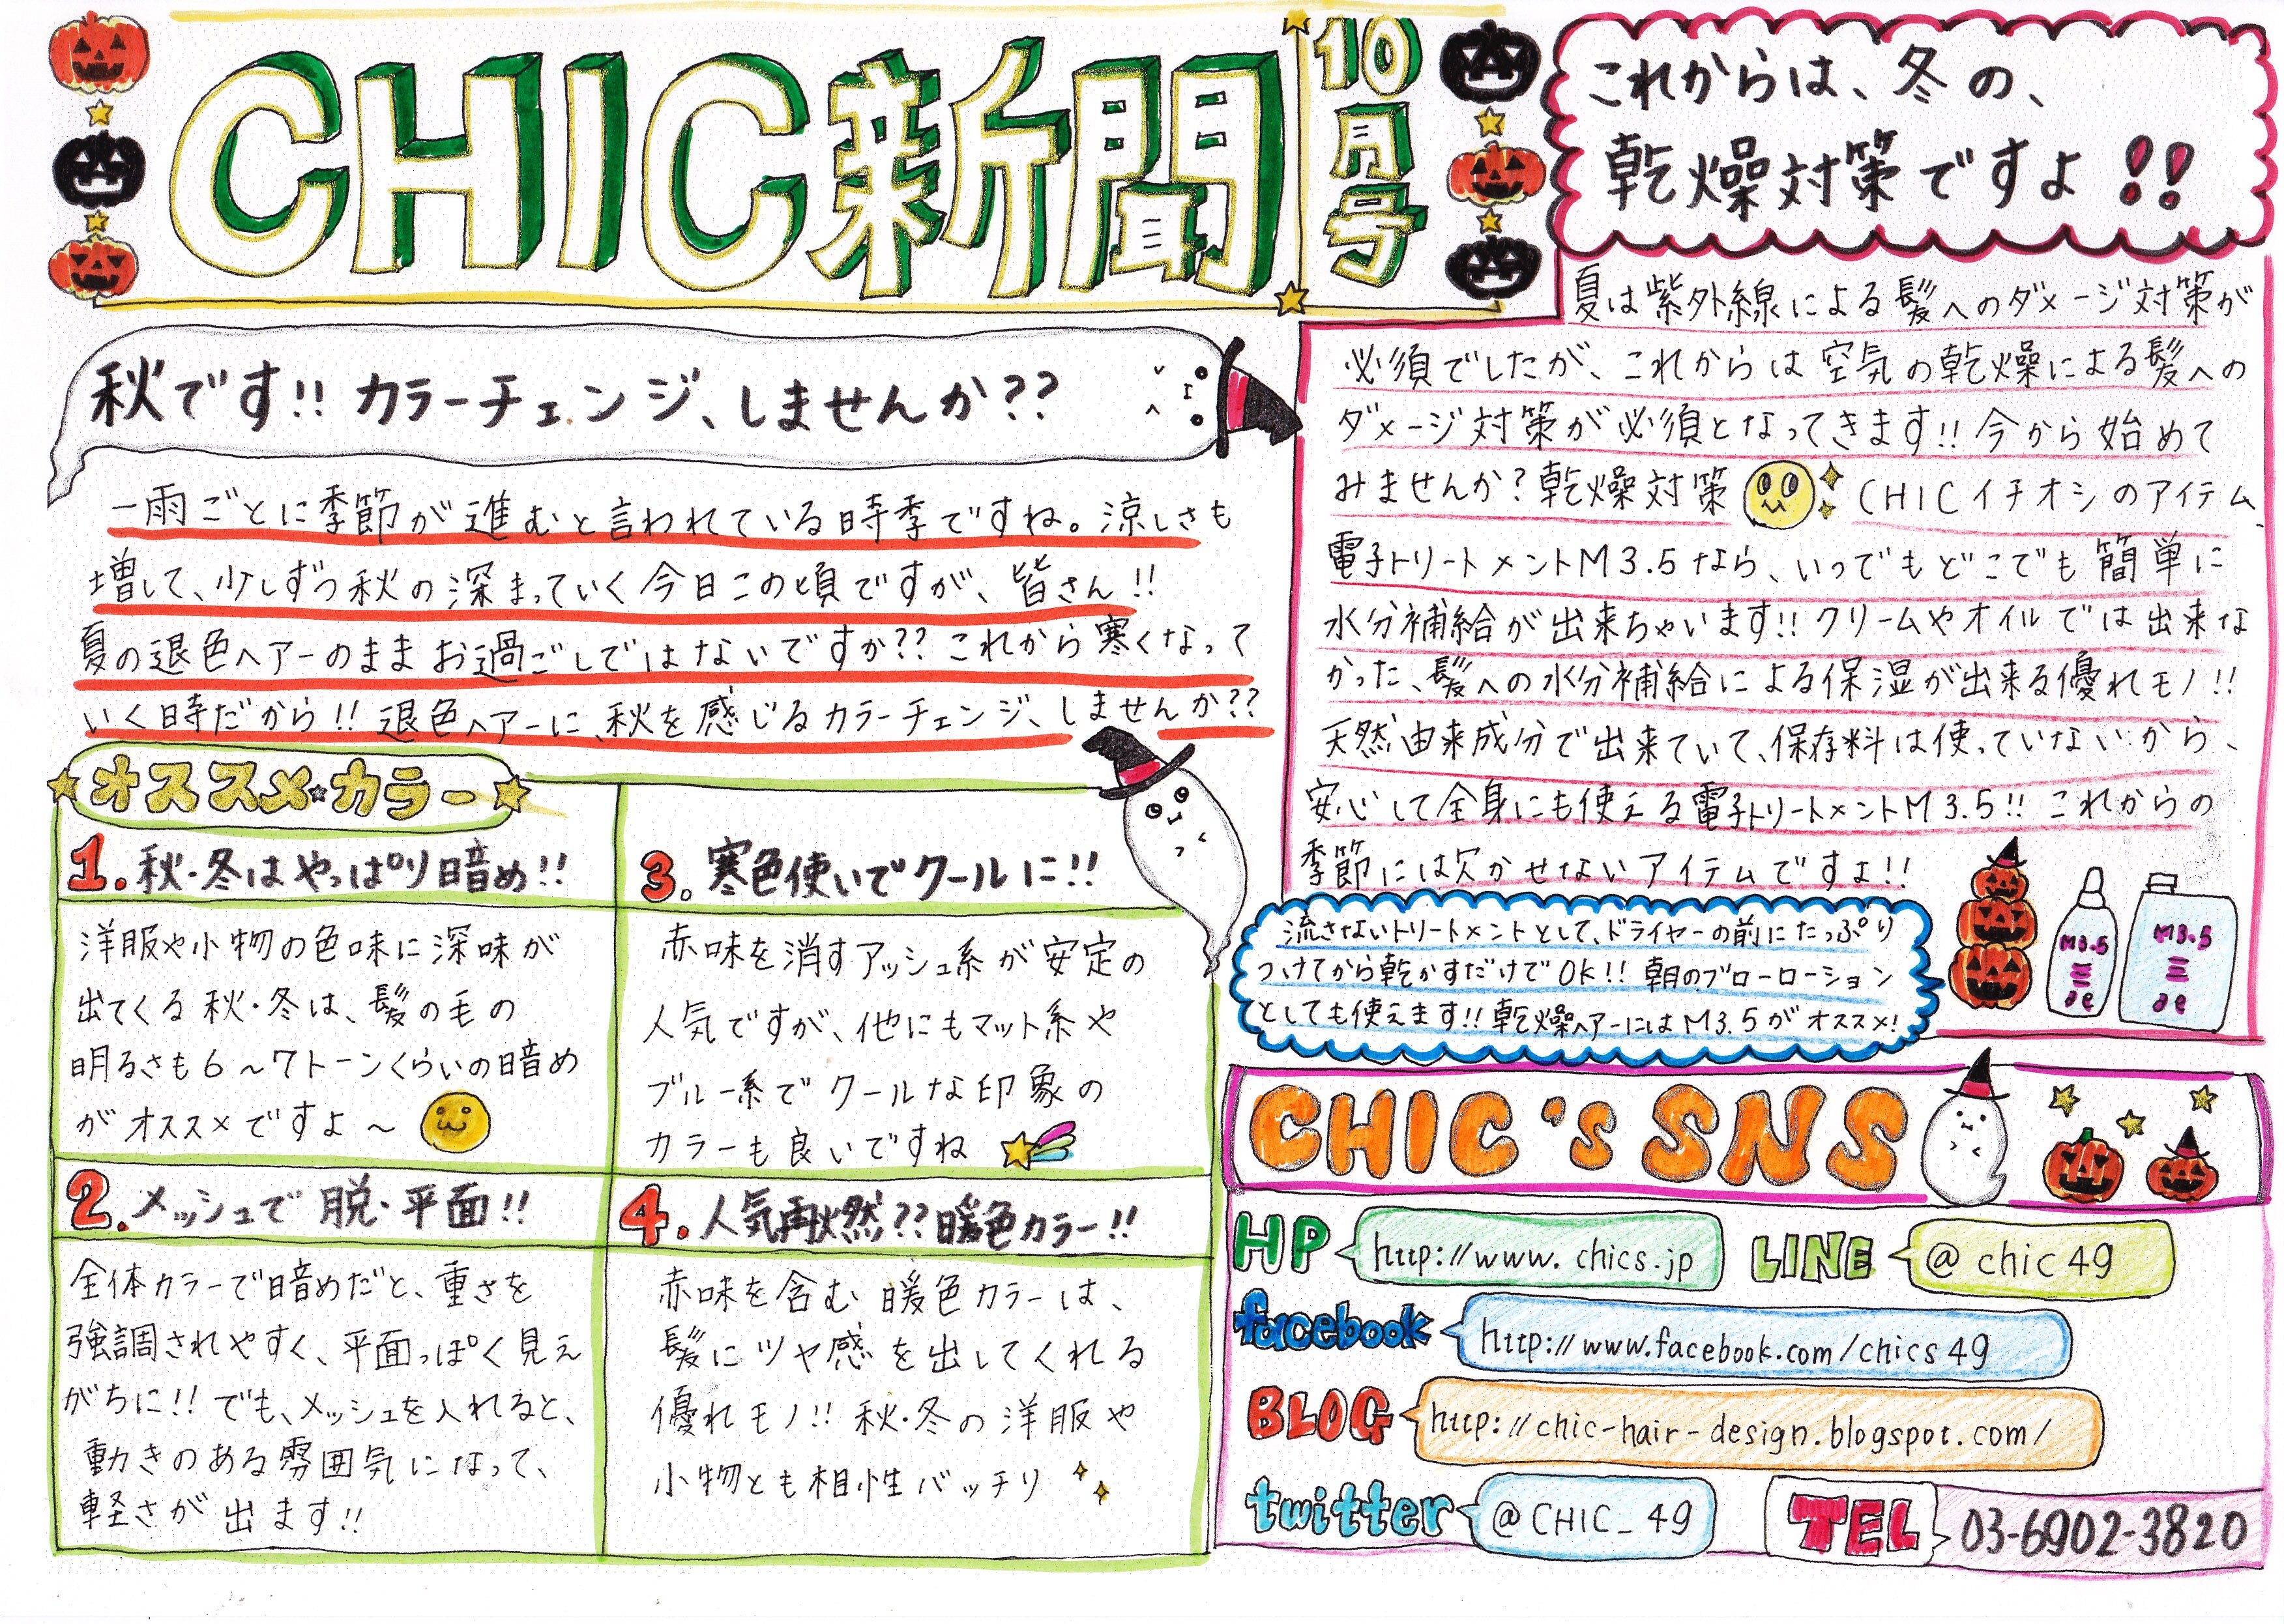 CHIC新聞
10月号
秋です!! カラーチェンジ、しませんか??
一雨ごとに季節が進むと言われている時季ですね。涼しさも
増して、少しずつ秋の深まっていく今日この頃ですが、皆さん!!
夏の退色ヘアーのままお過ごしではないですか?? これから寒くなって
いく時だから!! 退色ヘアーに、秋を感じるカラーチェンジ、しませんか??
オススメ☆カラー
1. 秋・冬はやっぱり暗め!!
洋服や小物の色味に深味が
出てくる秋・冬は、髪の毛の
明るさも6~7トーンくらいの暗め
がオススメですよ~
2. メッシュで脱・平面!!
全体カラーで暗めだと、重さを
強調されやすく、平面っぽく見え
がちに!! でも、メッシュを入れると、
動きのある雰囲気になって、
軽さが出ます!!
3. 寒色使いでクールに!!
赤味を消すアッシュ系が安定の
人気ですが、他にもマット系や
ブルー系でクールな印象の
カラーも良いですね
4. 人気再燃?? 暖色カラー!!
赤味を含む暖色カラーは、
髪にツヤ感を出してくれる
優れモノ!! 秋・冬の洋服や
小物とも相性バッチリ
これからは、冬の、
乾燥対策ですよ!!
夏は紫外線による髪へのダメージ対策が
必須でしたが、これからは空気の乾燥による髪への
ダメージ対策が必須となってきます!! 今から始めて
みませんか? 乾燥対策 CHICイチオシのアイテム、
電子トリートメントM3.5なら、いつでもどこでも簡単に
水分補給が出来ちゃいます!! クリームやオイルでは出来な
かった、髪への水分補給による保湿が出来る優れモノ!!
天然由来成分で出来ていて、保存料は使っていないから、
安心して全身にも使える電子トリートメントM3.5!! これからの
季節には欠かせないアイテムですよ!!
流さないトリートメントとして、ドライヤーの前にたっぷり
つけてから乾かすだけでOK!! 朝のブローローション
としても使えます!! 乾燥ヘアーにはM3.5がオススメ!
M3.5
M3.5
CHIC's SNS
HP http://www.chics.jp
LINE @chic49
facebook http://www.facebook.com/chics49
BLOG http://chic-hair-design.blogspot.com/
twitter @CHIC_49
TEL 03-6902-3820